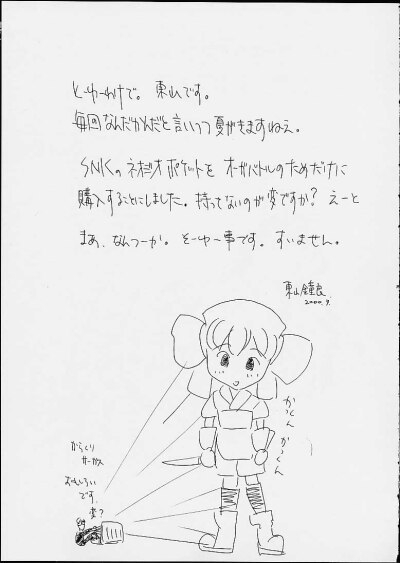 とーゆーわけで。東山です。
毎回なんだかんだと言いつつ夏がきますねぇ。
SNKのネオジオポケットを オーガバトルのためだけに
購入することにしました。持ってないのが変ですか？ えーと
まぁ、なんつーか。そーゆー事です。すいません。
東山
2000.9.
かっくん
かっくん
からくり
サーカス
おもしろい
です。
変？